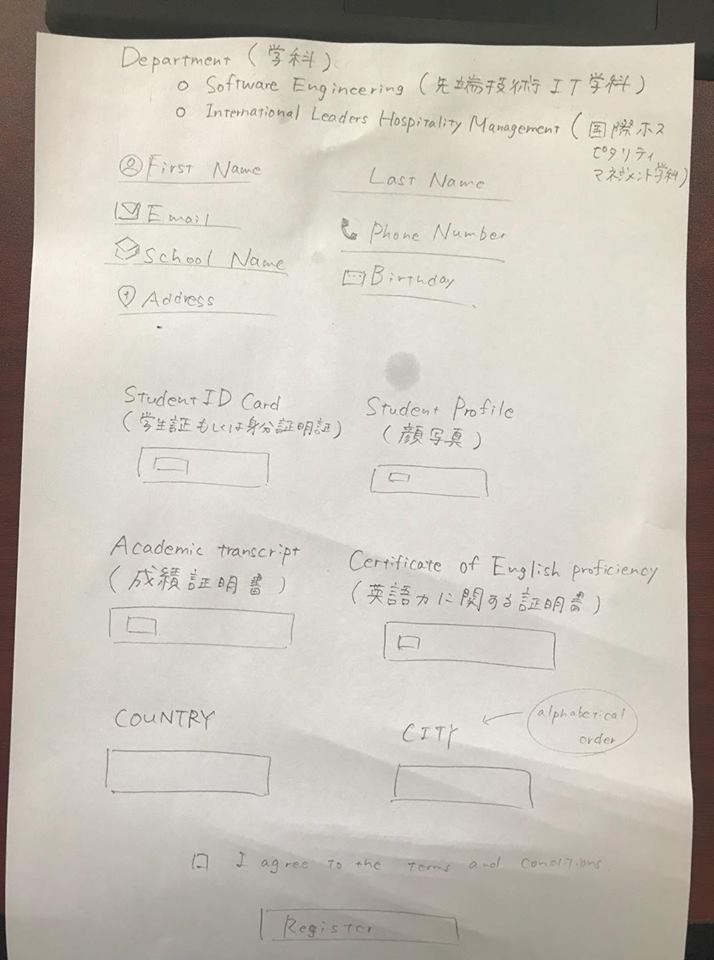 Department (学科)
Software Engineering (先端技術IT学科)
International Leaders Hospitality Management (国際ホス
ピタリティ
マネジメント学科)
First Name
Last Name
Email
Phone Number
School Name
Birthday
Address
Student ID Card
(学生証もしくは身分証明証)
Student Profile
(顔写真)
Academic transcript
(成績証明書)
Certificate of English proficiency
(英語力に関する証明書)
COUNTRY
CITY
alphabetical
order
I agree to the terms and conditions
Register